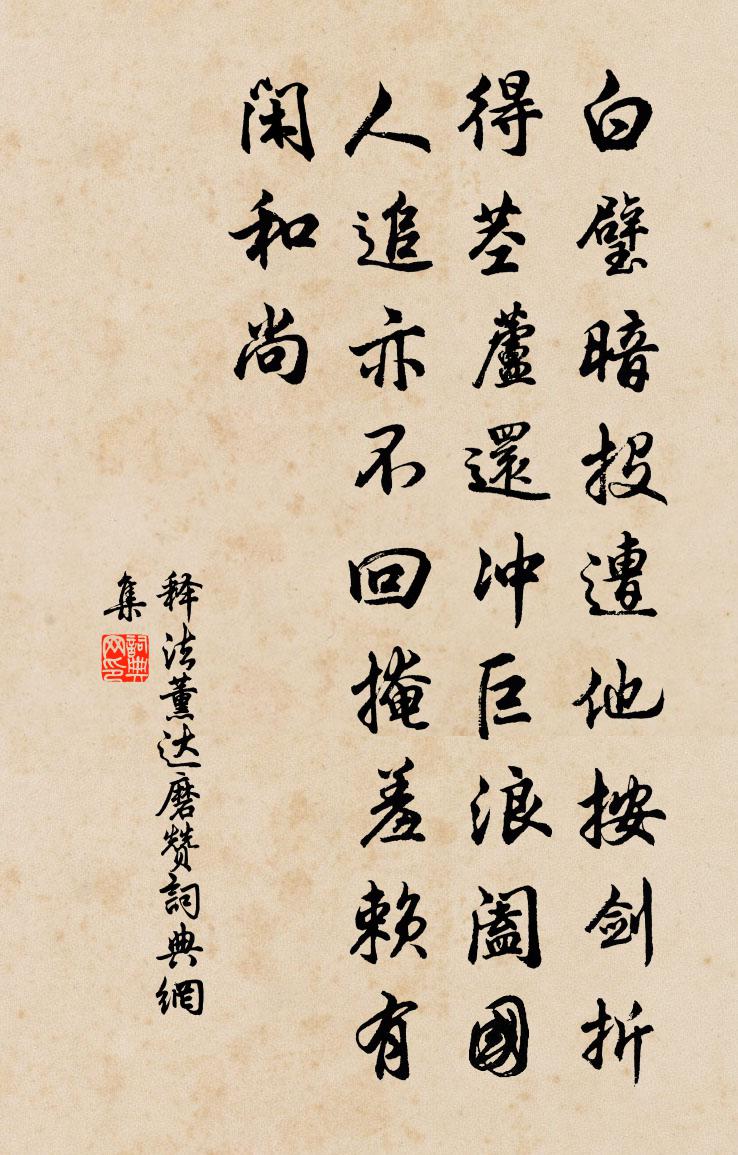 白璧暗投遭他按剑折
得茎蘆還冲巨浪闔國
人追亦不回掩羞赖有
闲和尚
释法薰达磨赞詞典網
集
詞典
网印